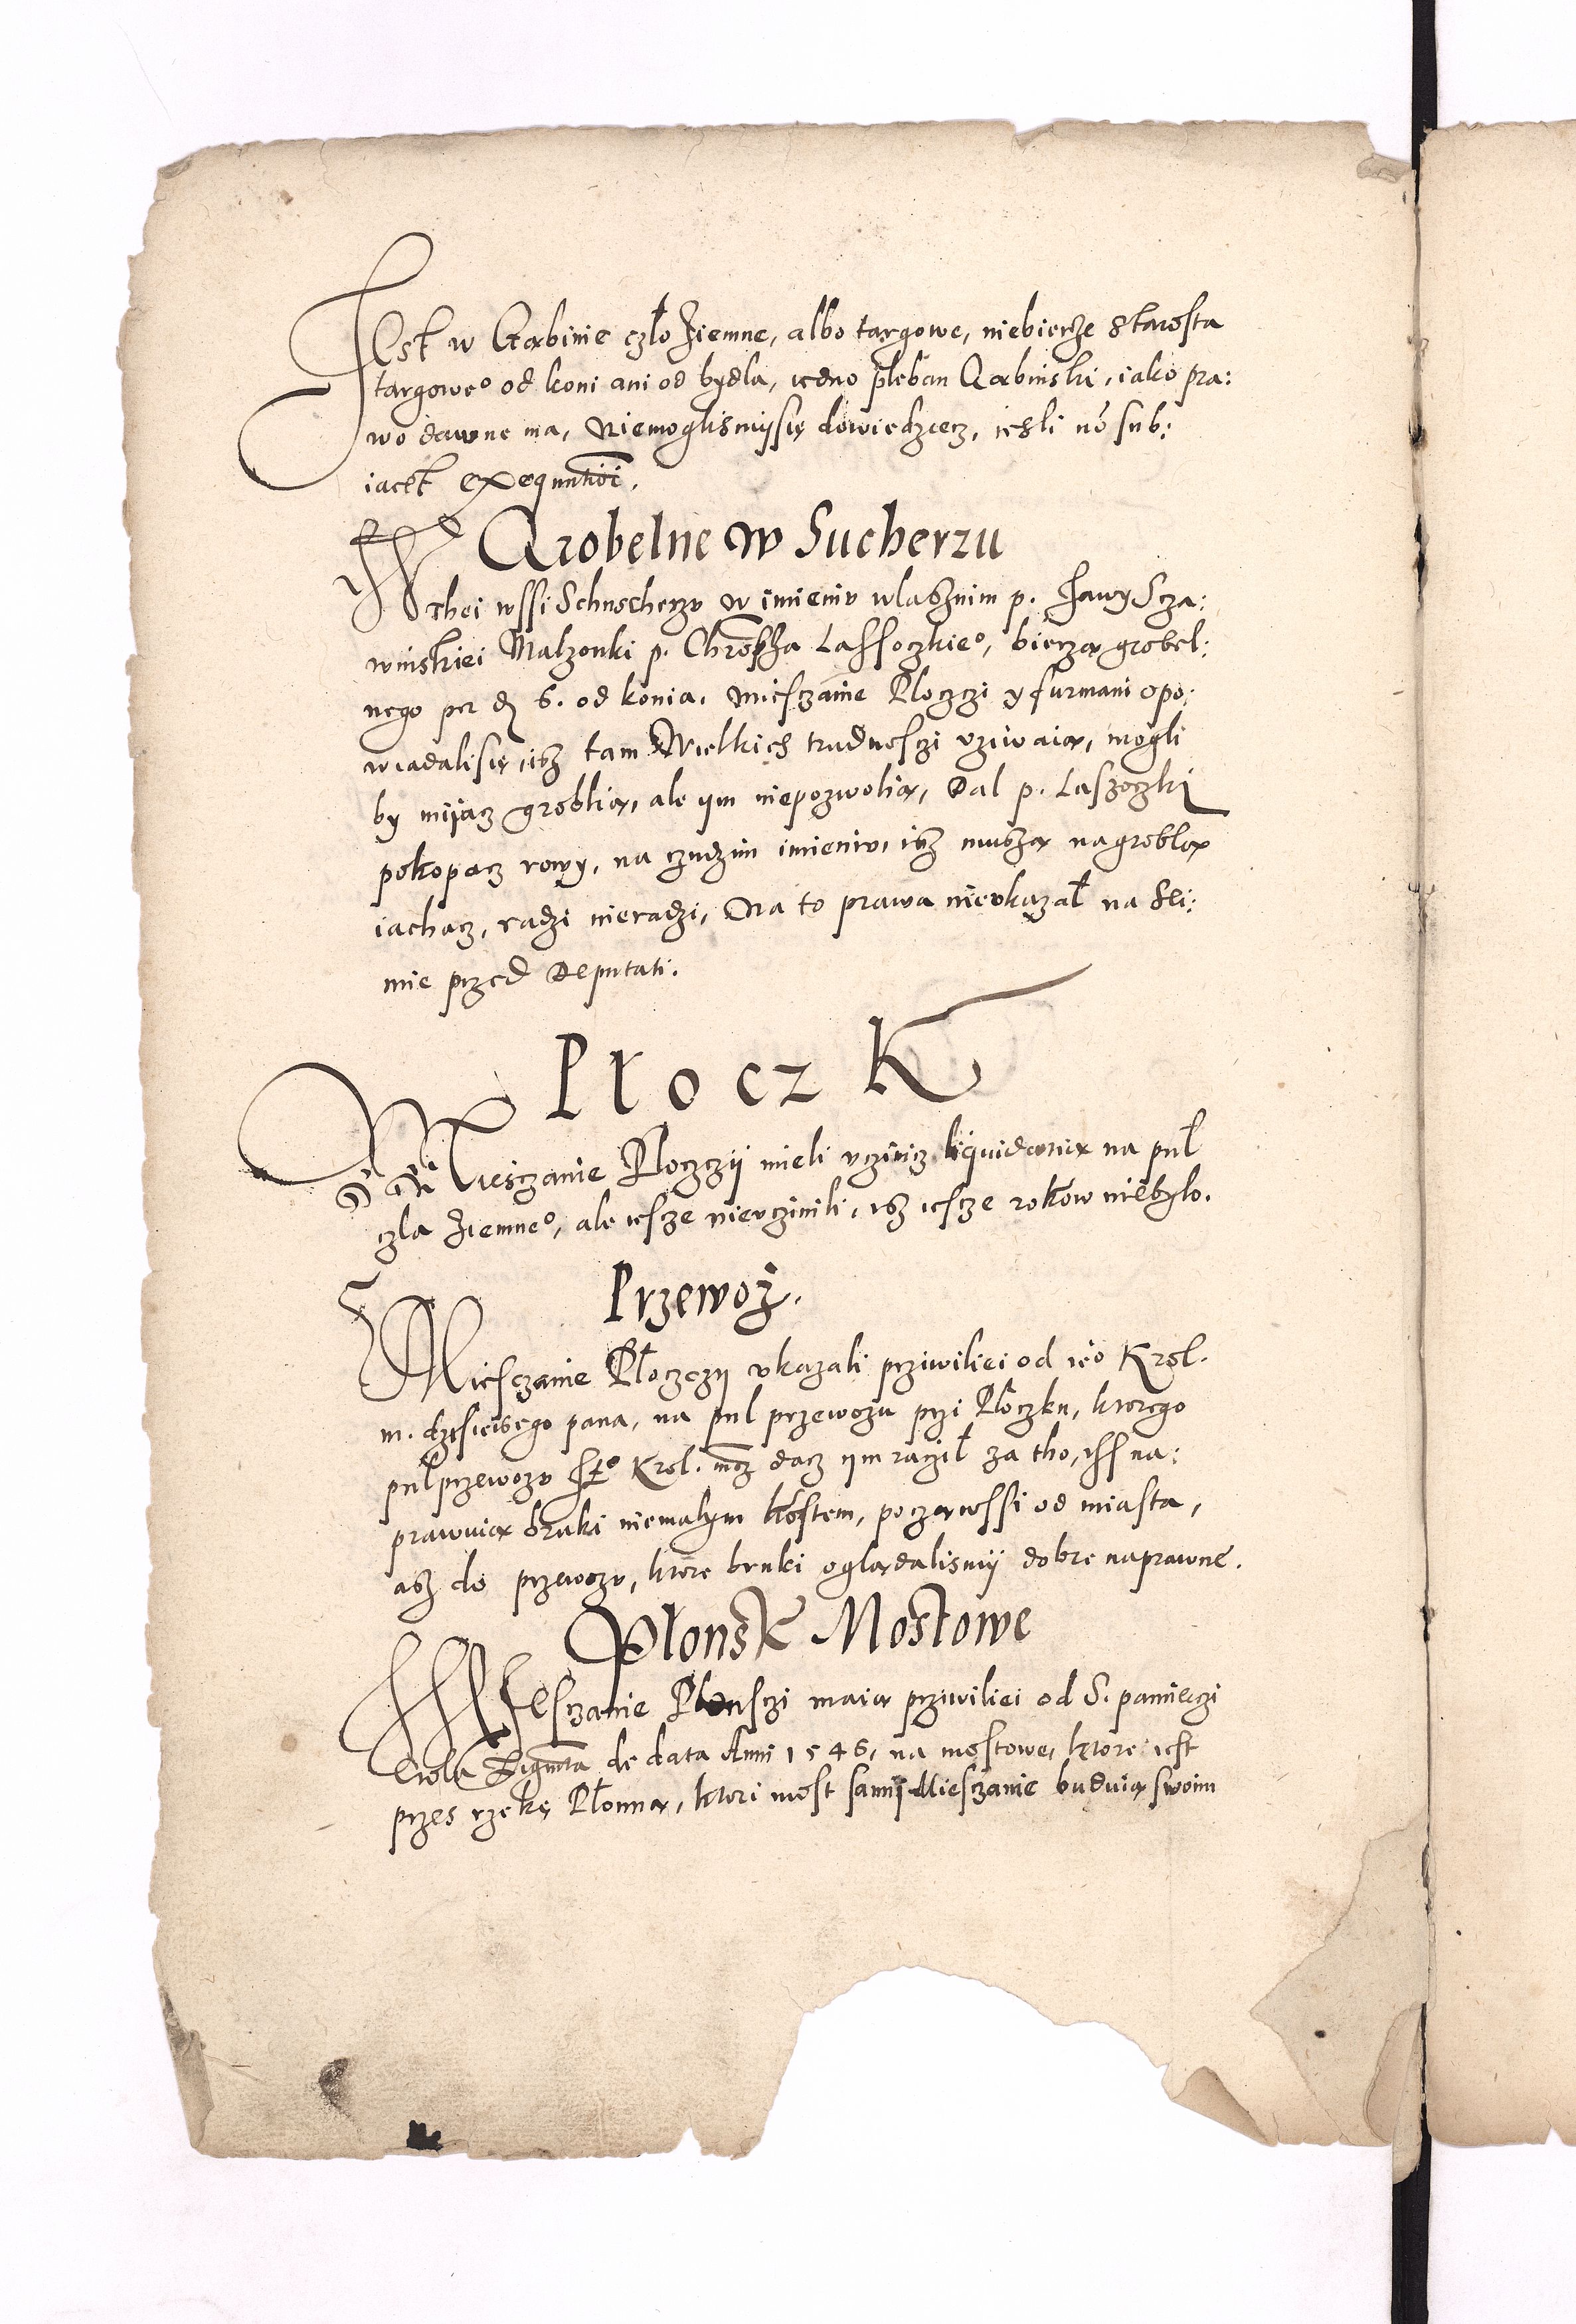 Jest w Gąbinie czło ziemne, albo targowe, niebierze Starosta
targoweo od koni ani od bydla, iedno pleban Gąbinski, iako pra:
wo dawne ma, Niemoglismÿsię dowiedziecz, iesli nō sub:
iacet exequutiōi.
Grobelne w Sucherzu
W thei wssi Schuscherzu w imieniu wlasznim p. Sza:
winskiei Malzonki p. Lassoczkieo, bierzą grobel:
nego per d 6. od konia. Miesczanie Ploczczi y furmani opo:
wiadalisię, isz tam Wielkich trudnosczi vziwaią, mogli
by mijacz groblią, ale ym niepozwolią, Dal p. Laszoczki
pokopacz rowy, na czudzim imieniu, isz muszą na groblą
iachacz, radzi nieradzi, Na to prawa nieukazał na Sei:
mie przed Deputati.
Płoczk
Miesczanie Płoczczÿ mieli vczinicz liquidanią na puł
czla ziemneo, ale iescze nieuczinili, isz iescze rokow niebylo.
Przewoz.
Miesczanie Płoczczÿ vkazali prziwiliei od ieō Krol.
m. dzisieiszego pana, na pul przewozu przi Płoczku, ktorego
pulprzewozu Krol. mcz dacz ym racził za tho, iss na:
prawuią bruki niemalym kōstem, począwssi od miasta,
asz do przewozu, ktore bruki oglądalismÿ dobre naprawne.
Płonsk Mostowe
Miesczanie Plonsczi maią prziwiliei od S. pamieczi
Crola Zigmta de data Anni 1546, na mostowe, ktore iest
przes rzekę Płonną, ktori most sami Miesczanie buduią swoim